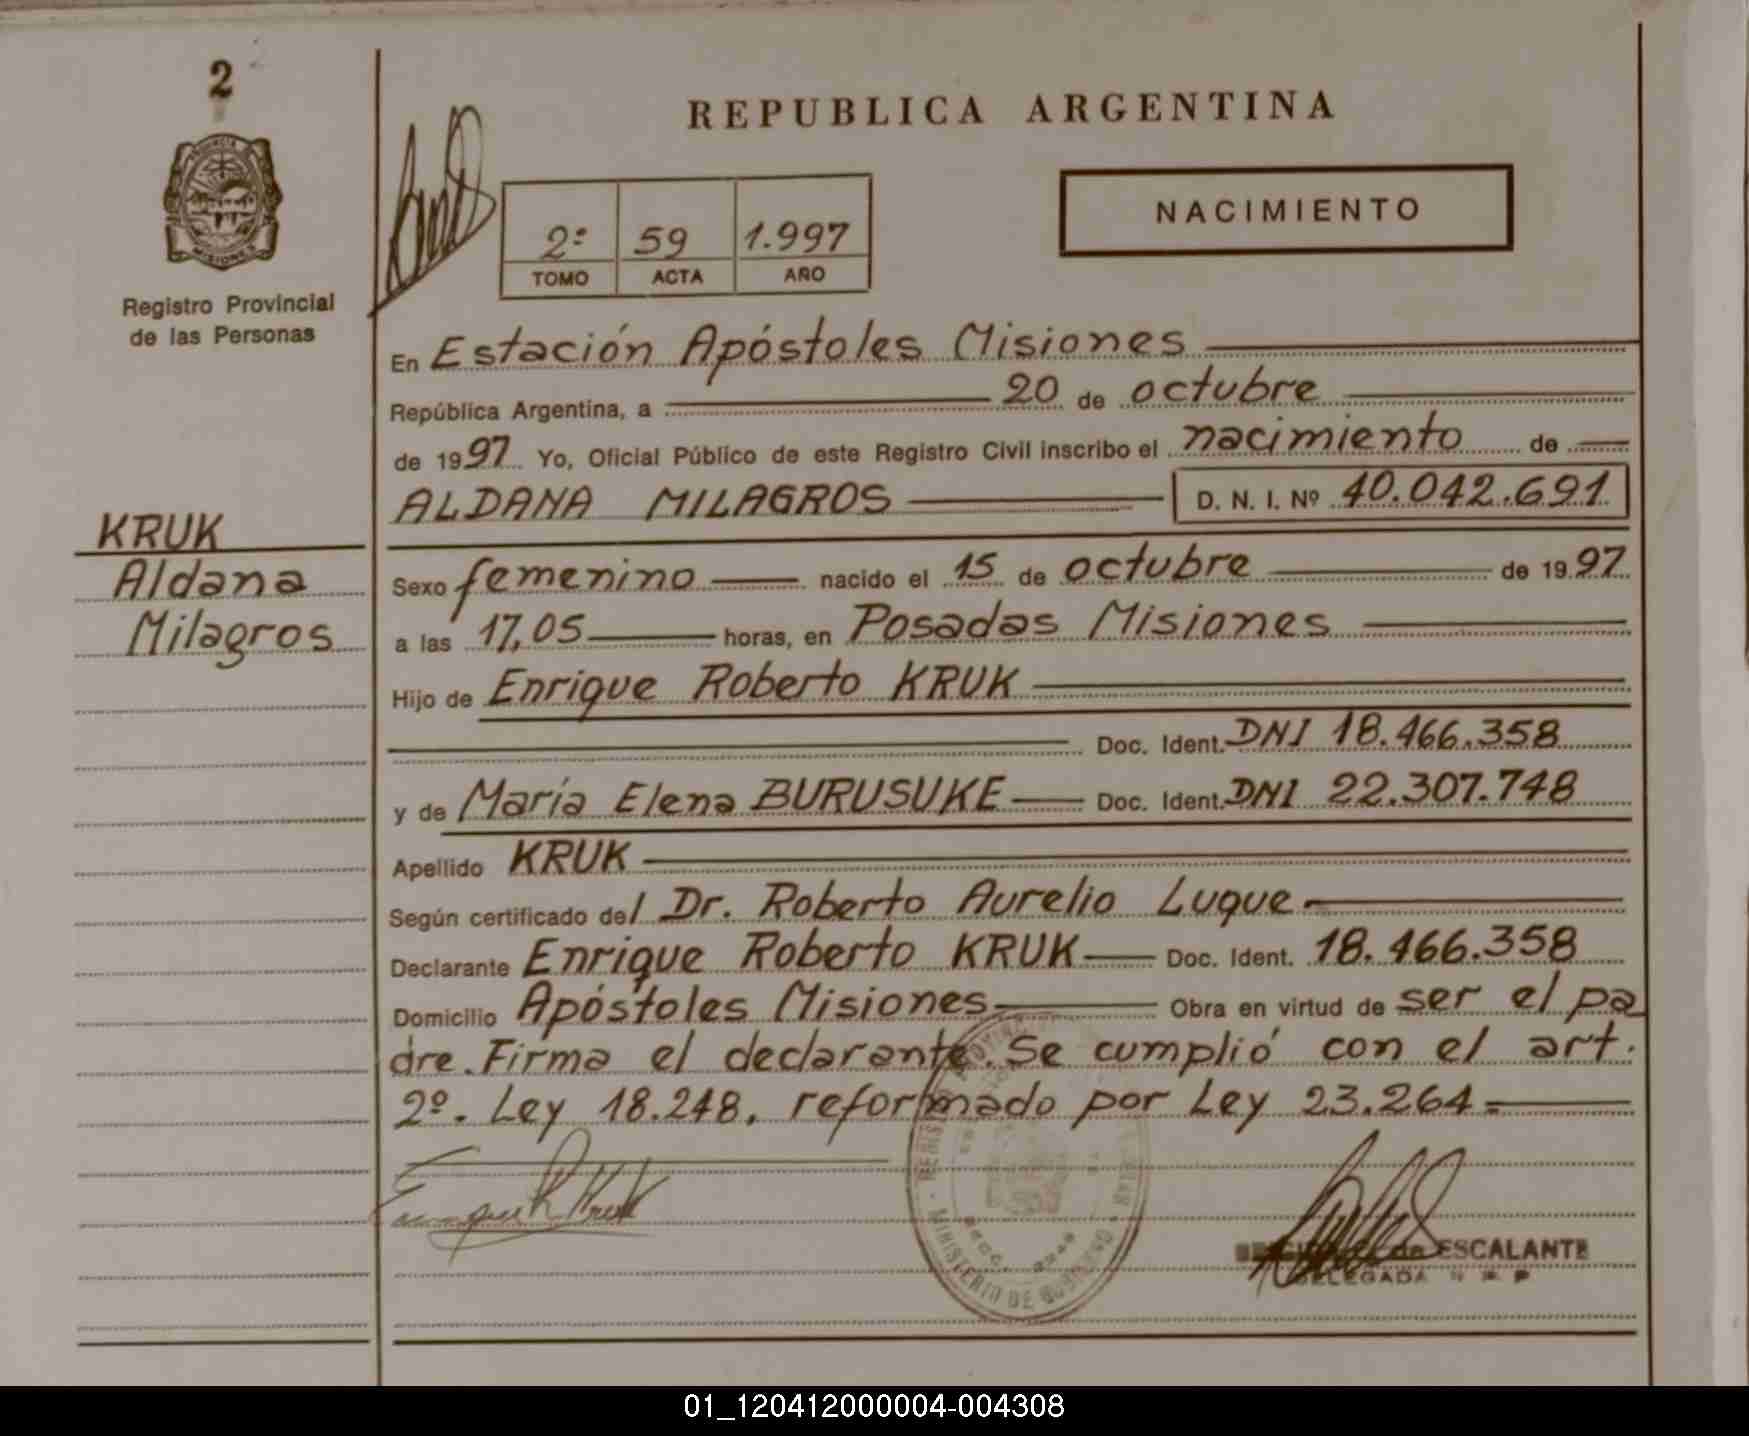 2
PROVINCIA
MISIONES
Registro Provincial
de las Personas
KRUK
Aldana
Milagros
REPUBLICA ARGENTINA
NACIMIENTO
2º 59 1.997
TOMO ACTA AÑO
En Estación Apóstoles Misiones
República Argentina, a 20 de octubre
de 1997 Yo, Oficial Público de este Registro Civil inscribo el nacimiento de
ALDANA MILAGROS D. N. I. Nº 40.042.691
Sexo femenino nacido el 15 de octubre de 1997
a las 17,05 horas, en Posadas Misiones
Hijo de Enrique Roberto KRUK
Doc. Ident. DNI 18.466.358
y de María Elena BURUSUKE Doc. Ident. DNI 22.307.748
Apellido KRUK
Según certificado del Dr. Roberto Aurelio Luque
Declarante Enrique Roberto KRUK Doc. Ident. 18.466.358
Domicilio Apóstoles Misiones Obra en virtud de ser el pa
dre. Firma el declarante. Se cumplió con el art.
2º. Ley 18.248, reformado por Ley 23.264
Enrique R Kruk
MINISTERIO DE GOBIERNO
de ESCALANTE
DELEGADA
01_120412000004-004308